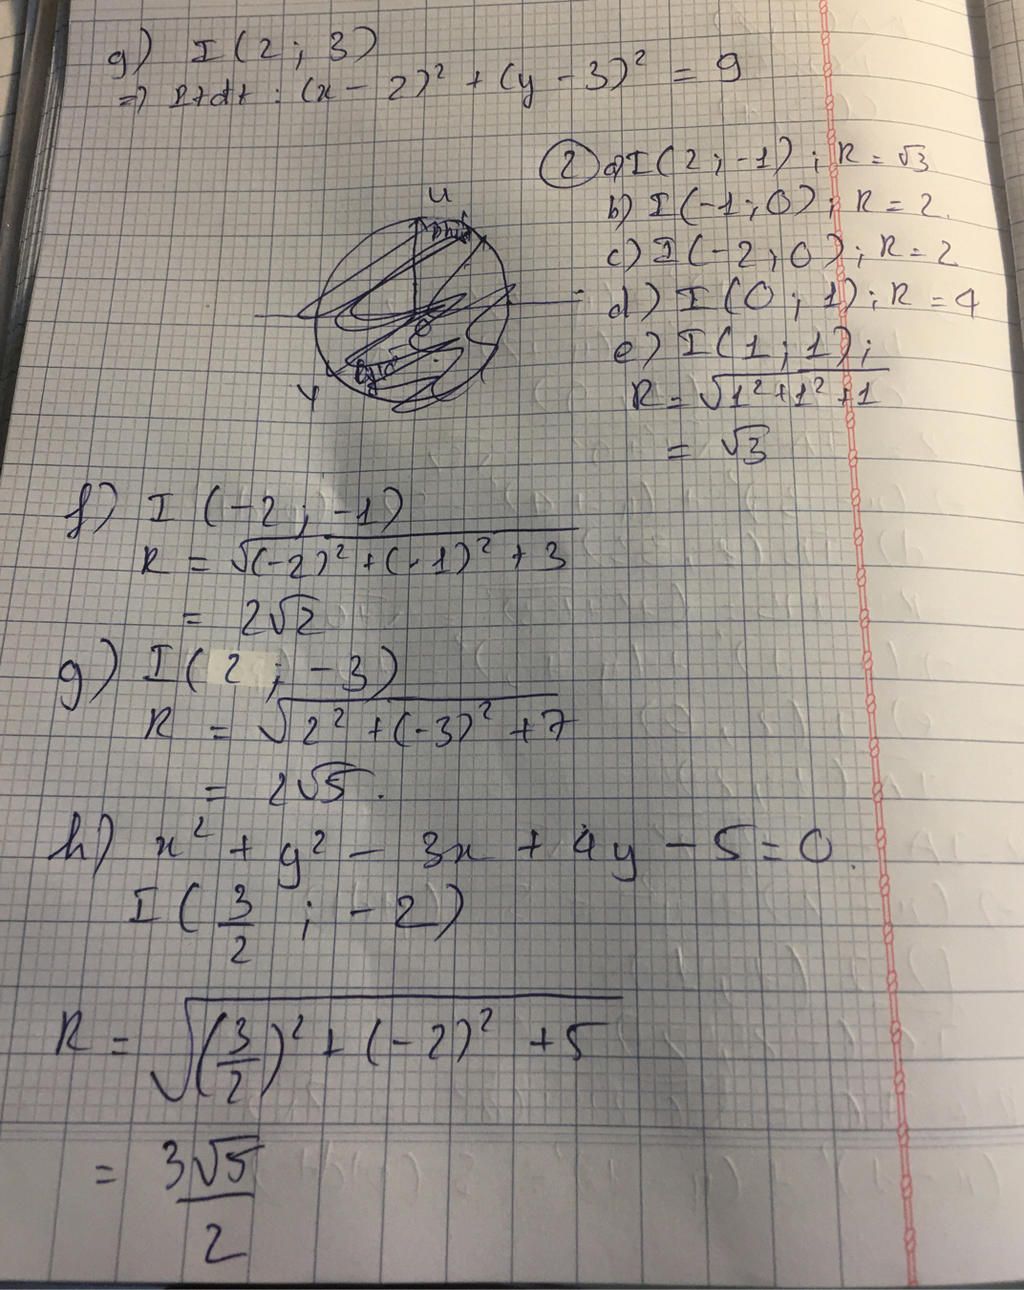 g) I (2 ; 3)
=> Ptdt : (x - 2)² + (y - 3)² = 9
② a) I (2 ; -1) ; R = √3
b) I (-1 ; 0) ; R = 2
c) I (-2 ; 0) ; R = 2
d) I (0 ; 1) ; R = 4
e) I (1 ; 1) ;
R = √(1² + 1² + 1)
= √3
f) I (-2 ; -1)
R = √((-2)² + (-1)² + 3)
= 2√2
g) I (2 ; -3)
R = √(2² + (-3)² + 7)
= 2√5.
h) x² + y² - 3x + 4y - 5 = 0.
I (3/2 ; -2)
R = √((3/2)² + (-2)² + 5)
= 3√5/2